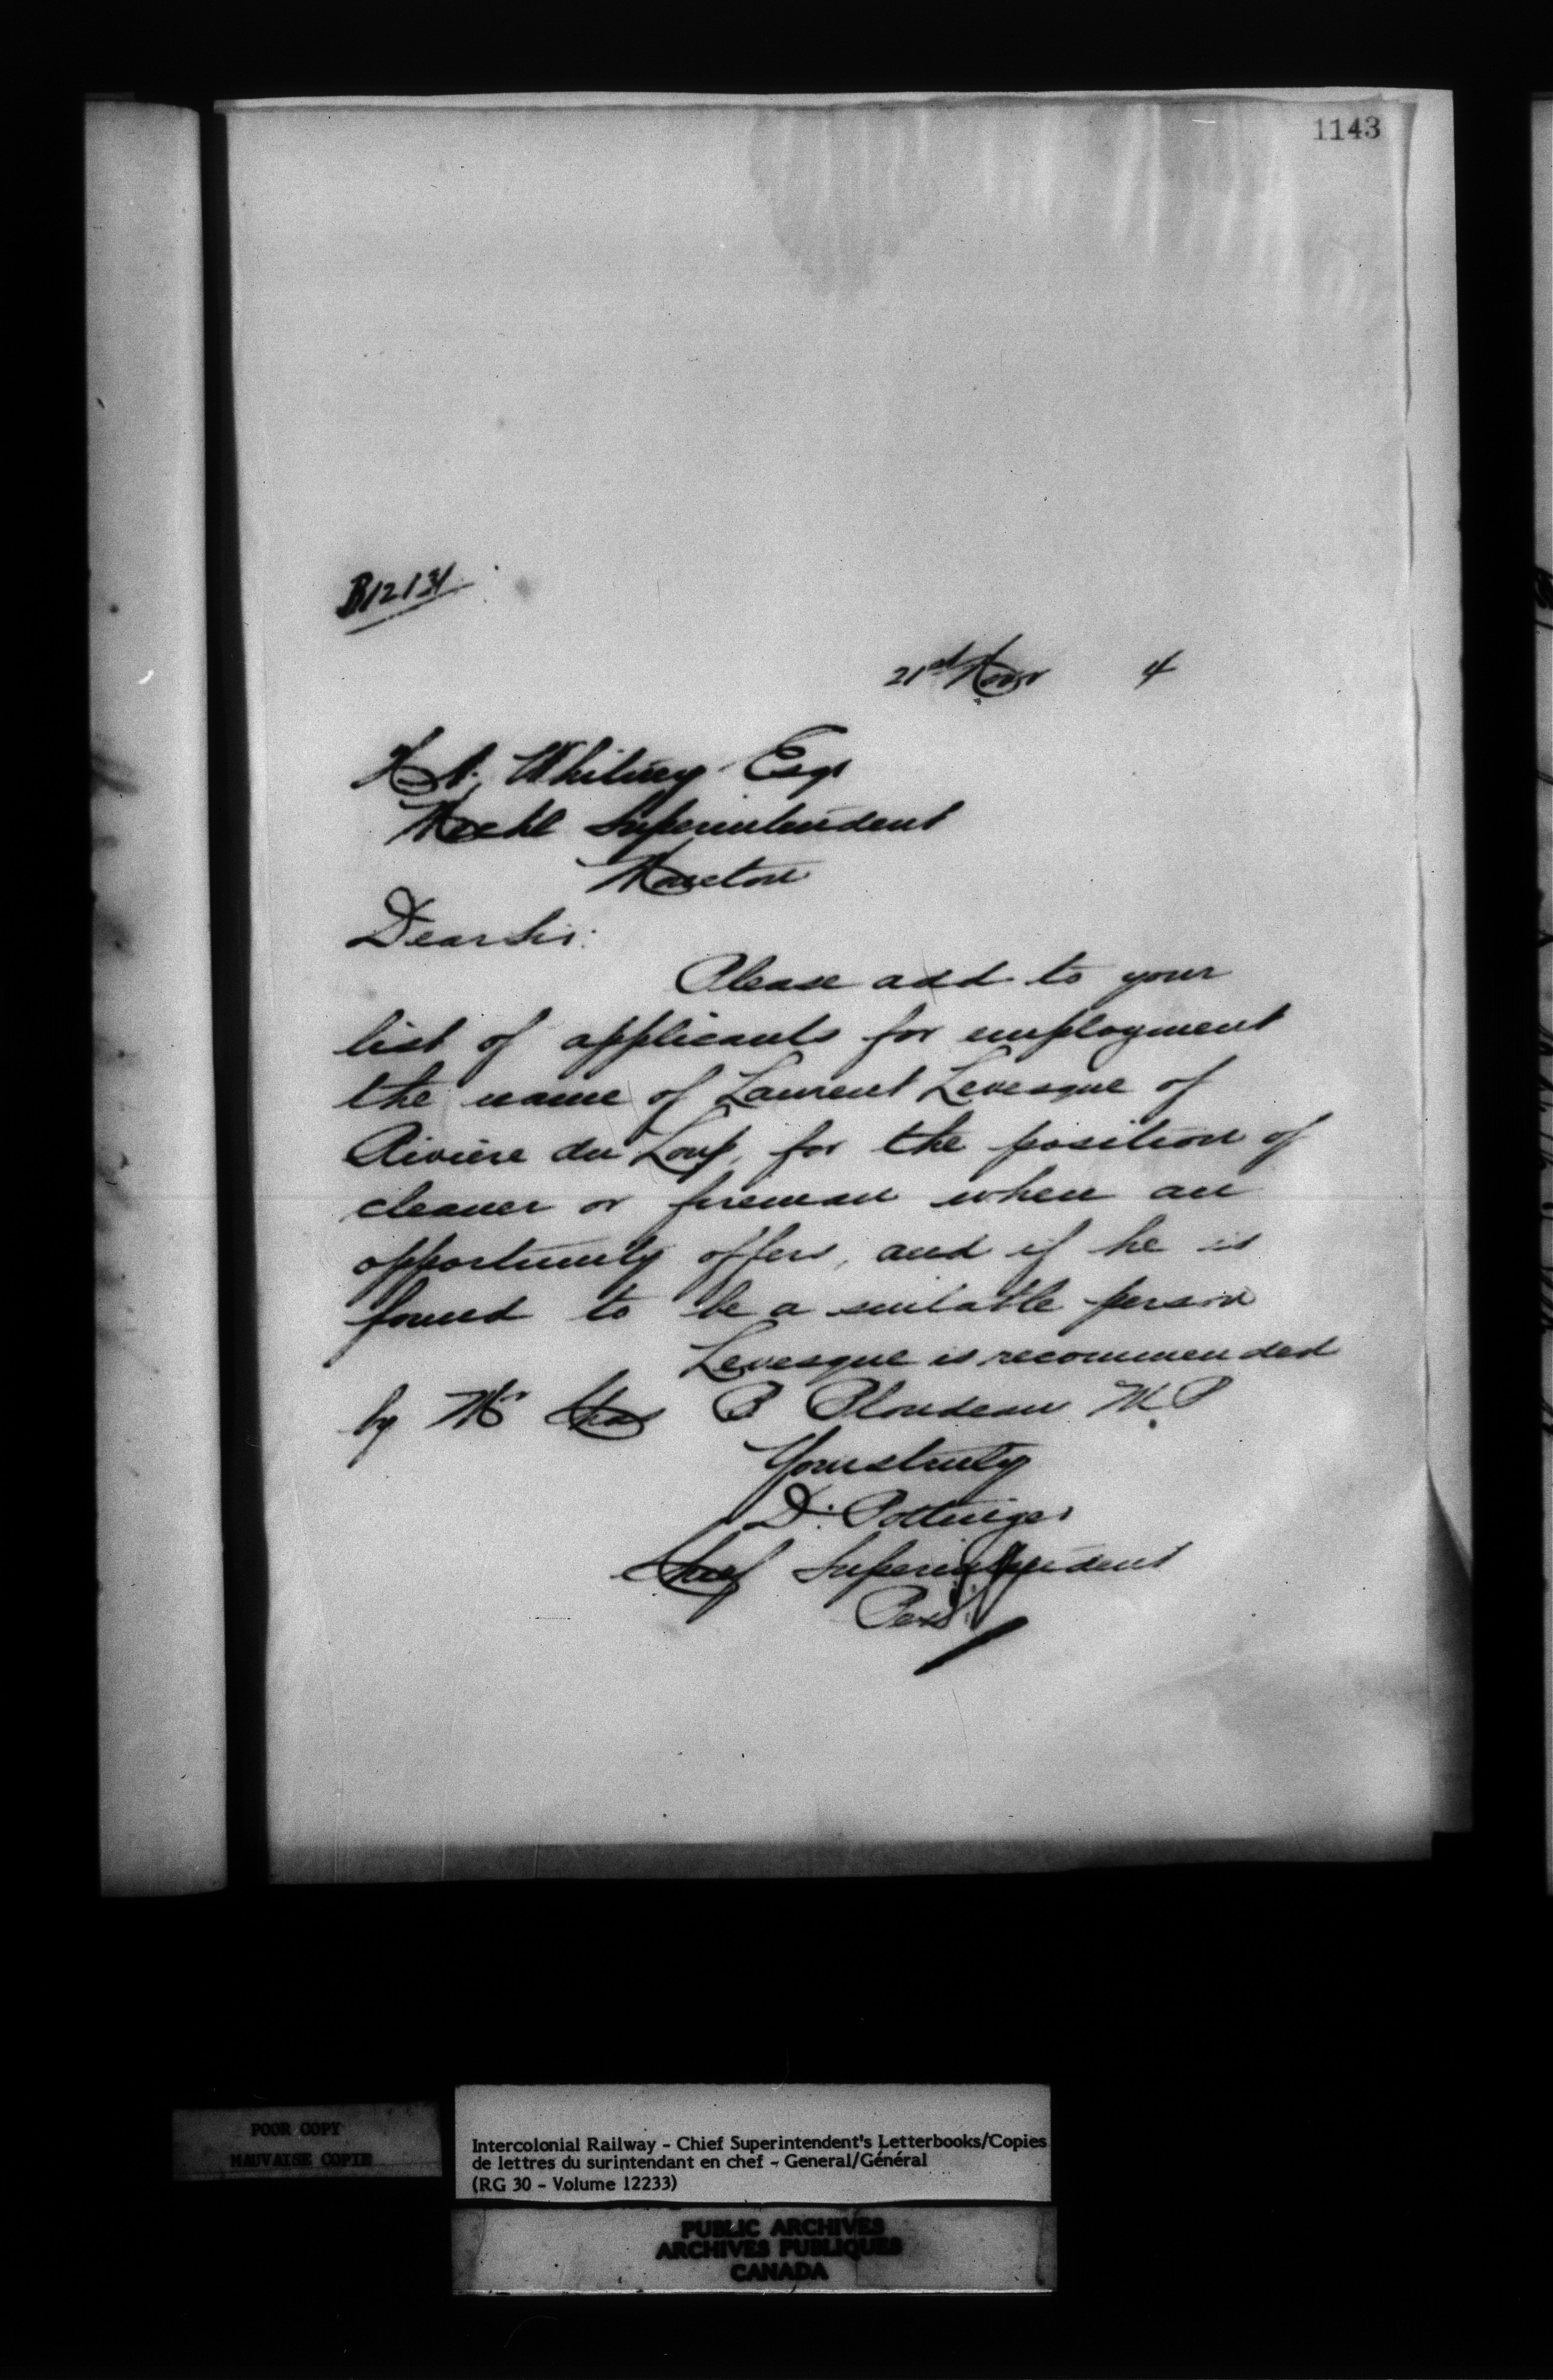 1143
B12131
21st Novr 4
H A. Whitney Esqr
Mechl Superintendent
Moncton
Dear Sir:
Please add to your
list of applicants for employment
the name of Laurent Levesque of
Riviere du Loup, for the position of
cleaner or fireman when an
opportunity offers, and if he is
found to be a suitable person
Levesque is recommended
by Mr Chas B Blondeau M.P
Yours truly
D. Pottinger
Chief Superintendent
Per
POOR COPY
MAUVAISE COPIE
Intercolonial Railway - Chief Superintendent's Letterbooks/Copies
de lettres du surintendant en chef - General/Général
(RG 30 - Volume 12233)
PUBLIC ARCHIVES
ARCHIVES PUBLIQUES
CANADA